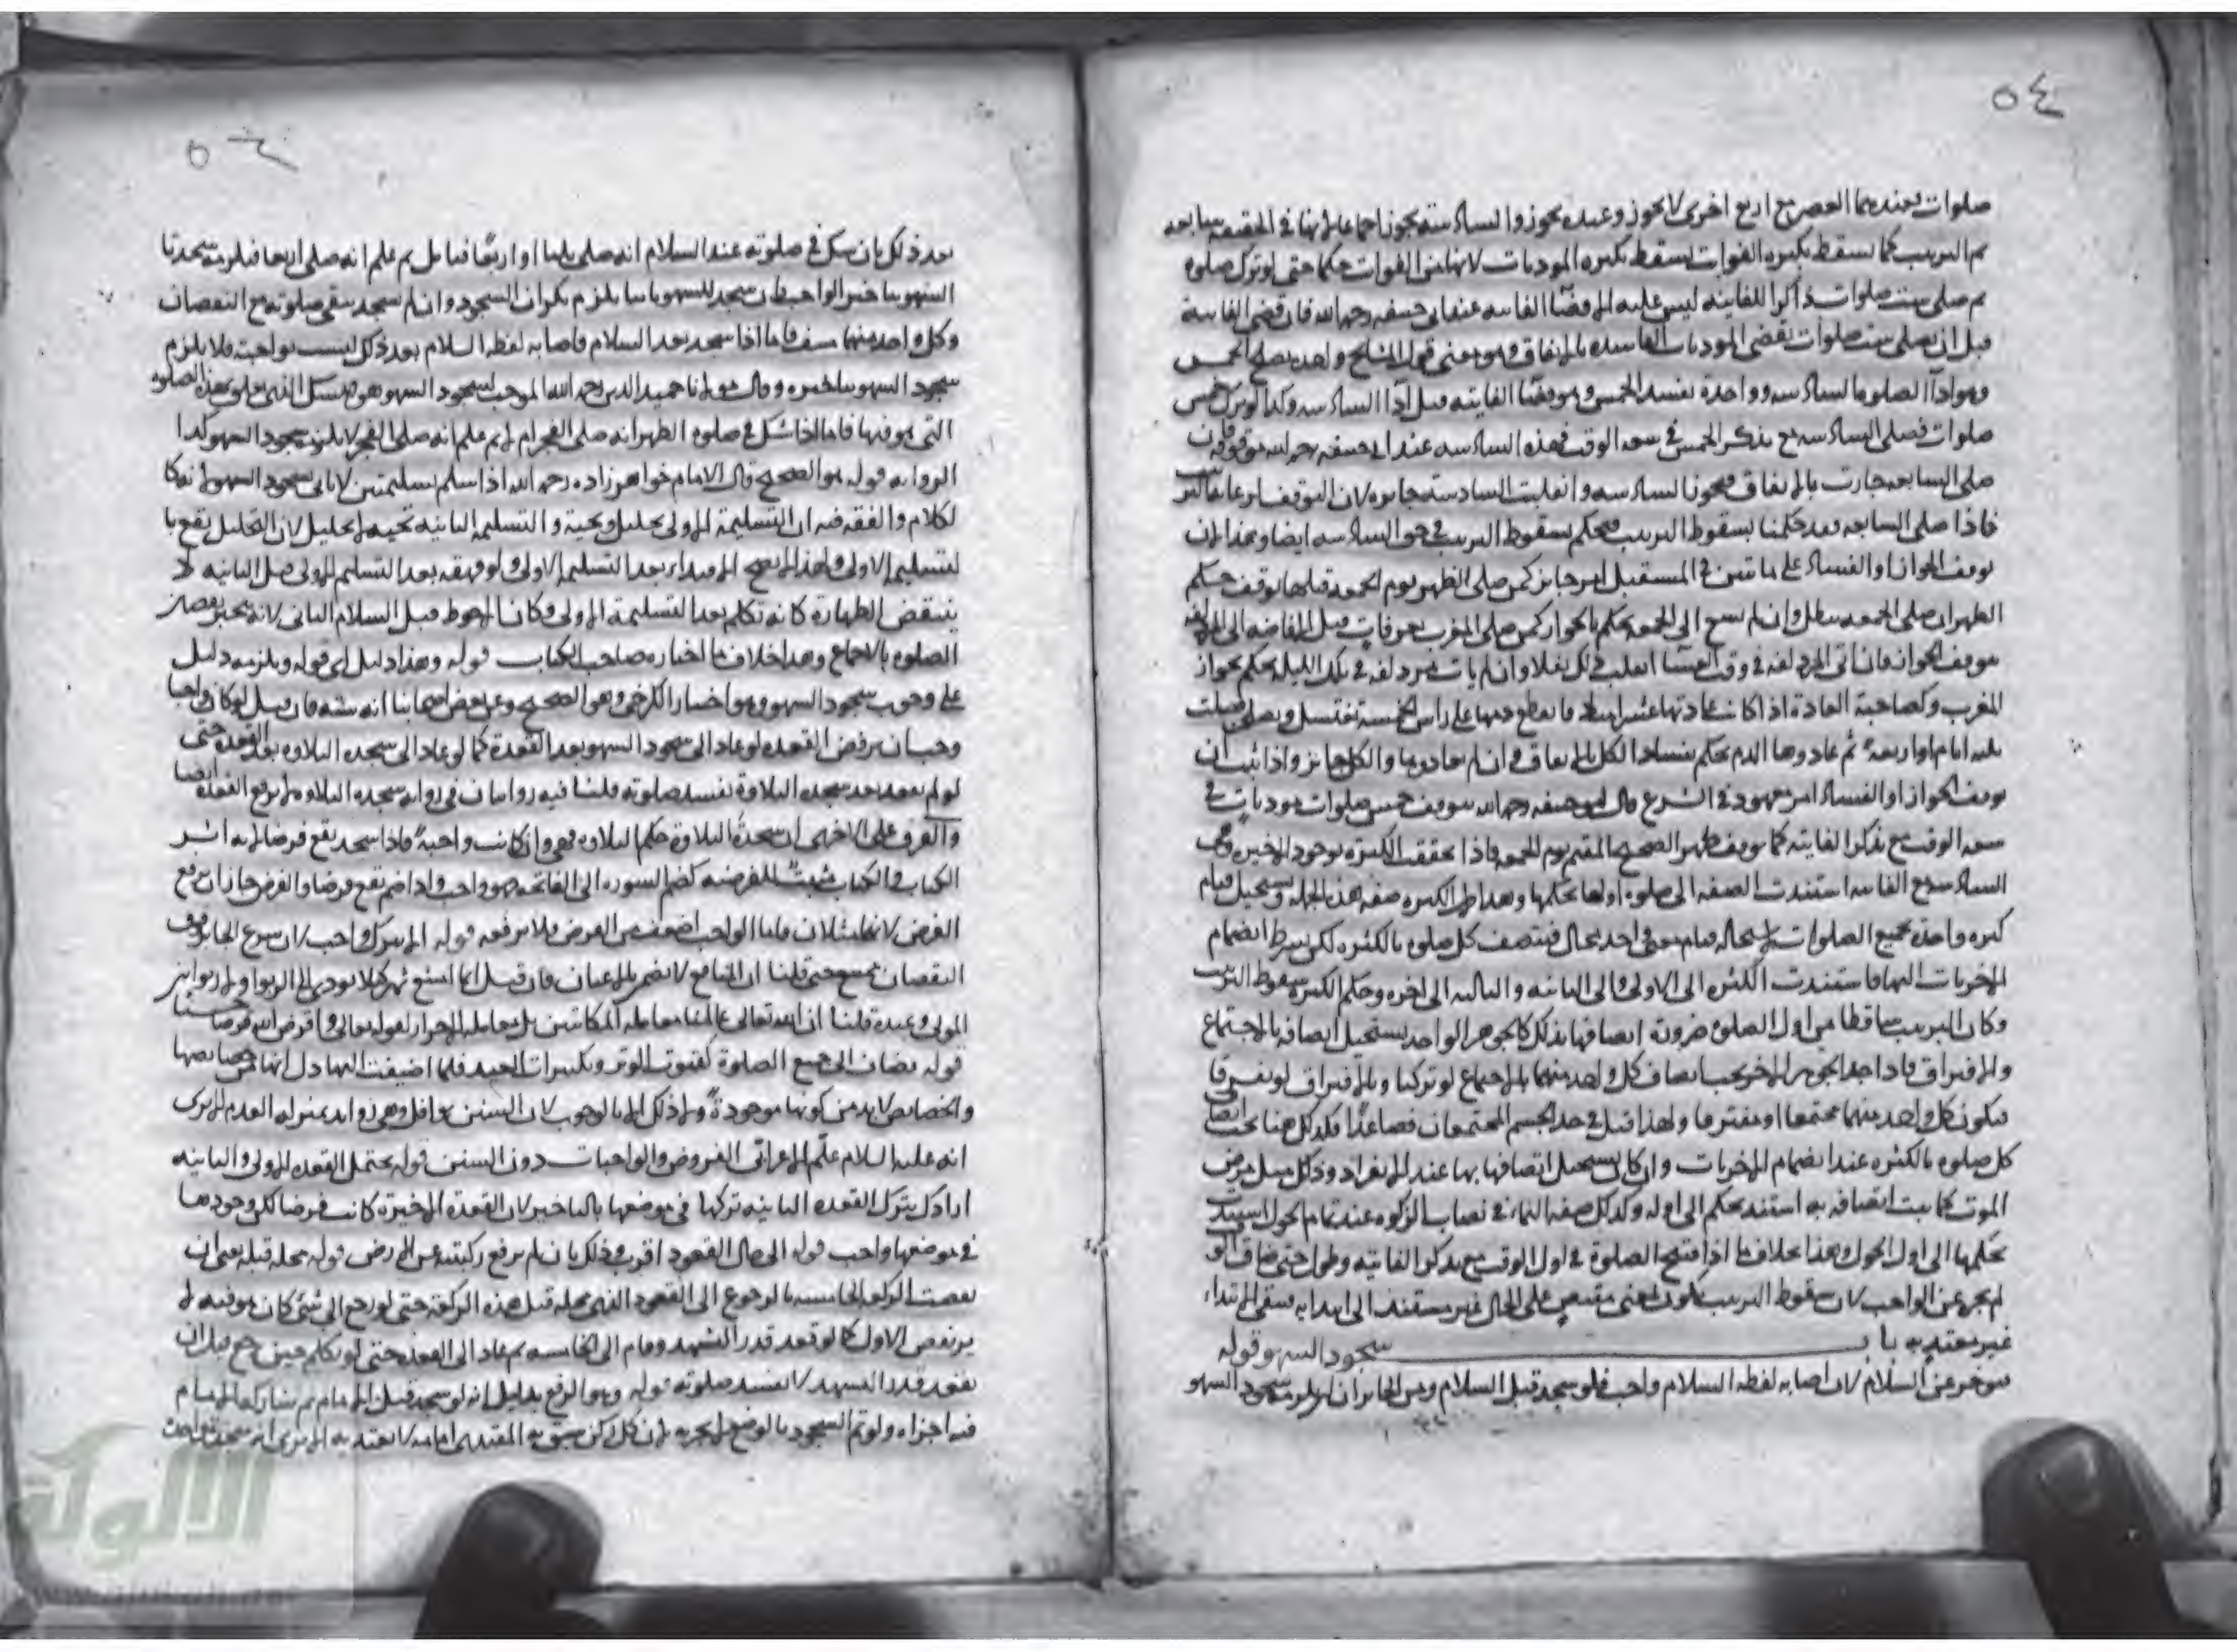 ٥٤
صلوات وعندهما العصر مع اربع اخرى لا يجوز وعنده يجوز والسادسة يجوز اجماعا لانها في الحقيقة سابعة
ثم الترتيب كما يسقط بكثرة الفوائت يسقط بكثرة المؤديات لانها من الفوائت حكما حتى لو ترك صلوة
ثم صلى ست صلوات ذاكرا للفايتة ليس عليه الا قضا الفايتة عند ابي حنيفة رحمه الله فان قضى الفايتة
قبل ان يصلي ست صلوات يقضي المؤديات الفاسدة بالاتفاق وهو معنى قول المشايخ واحدة تصحح الخمس
وهو اداا الصلوة السادسة وواحدة تفسد الخمس وهو قضا الفايتة قبل اداا السادسة وكذا لو ترك خمس
صلوات فصلى السادسة مع تذكر الخمس في سعة الوقت فهذه السادسة عند ابي حنيفة رحمه الله موقوفة
صلى السابعة جازت بالاتفاق ويجوز السادسة وانقلبت السادسة جايزة لان التوقف
فاذا صلى السابعة فقد حكمنا بسقوط الترتيب فيحكم بسقوط الترتيب في حق السادسة ايضا وهذا لان
توقف الجواز او الفساد على ما تبين في المستقبل امر جايز كمن صلى الظهر يوم الجمعة قبلها توقف حكم
الظهر ان صلى الجمعة بطل وان لم يسع الى الجمعة يحكم بالجواز كمن صلى المغرب بعرفات قبل الافاضة الى المزدلفة
توقف الجواز فان اتى المزدلفة في وقت العشا انقلب ذلك نفلا وان لم يات مزدلفة في تلك الليلة يحكم بجواز
المغرب وكصاحبة العادة اذا كانت عادتها عشرا
ثلثة ايام او اربعة ثم عاودها الدم يحكم بفساد الكل بالاتفاق وان لم يعاودها والكل جايز واذا ثبت ان
توقف الجواز او الفساد امر معهود في الشرع قال ابو حنيفة رحمه الله يتوقف خمس صلوات مؤديات في
سعة الوقت مع تذكر الفايتة كما توقف ظهر الصحيح المقيم يوم الجمعة فاذا تحققت الكثرة بوجود الاخيرة وهي
السادسة مع الفايتة استندت الصفة الى صلوة اولها بحكمها وهذا لان الكثرة صفة هذه الجملة ويستحيل قيام
كثرة واحدة بجميع الصلوات لاستحالة قيام معنى واحد بمحال فيتصف كل صلوة بالكثرة لكن بشرط انضمام
الاخريات اليها فاستندت الكثرة الى الاولى والى الثانية والثالثة الى اخره وحكم الكثرة سقوط الترتيب
وكان الترتيب ساقطا من اول الصلوة ضرورة اتصافها بذلك كالجوهر الواحد يستحيل اتصافه بالاجتماع
والافتراق فاذا جاء الجوهر الاخر يجب اتصاف كل واحد منهما بالاجتماع لو تركبا وبالافتراق لو تفرقا
فيكون كل واحد منهما مجتمعا او مفترقا ولهذا قيل في حد الجسم المجتمعان فصاعدا فكذلك هنا يجب اتصاف
كل صلوة بالكثرة عند انضمام الاخريات وان كان يستحيل اتصافها بها عند الانفراد وذلك مثل مرض
الموت لما ثبت اتصافه به استند بحكم الى اوله وكذلك صفة النماء في نصاب الزكوة عند تمام الحول استند
بحكمها الى اول الحول وهذا بخلاف ما اذا افتتح الصلوة في اول الوقت مع تذكر الفايتة وطول حتى ضاق الو
لم يجز عن الواجب لان سقوط الترتيب يكون لمعنى مقتصر على الحال غير مستند الى ابتدايه فبقي الابتداء
غير معتد به باب سجود السهو قوله
فيؤخر عن السلام لان اصابة لفظة السلام واجب فلو سجد قبل السلام ومن الجايز ان يلزمه سجود السهو
بعد ذلك بان شك في صلوته عند السلام انه صلى ثلثا او اربعا فتامل ثم علم انه صلى اربعا فيلزمه سجدتا
السهو بتاخير الواجب فان سجد للسهو ثانيا يلزم تكرار السجود وان لم يسجد يبقى صلوته مع النقصان
وكل واحد منهما منتف فاما اذا سجد بعد السلام فاصابة لفظة السلام بعد ذلك ليست بواجبة فلا يلزم
سجود السهو بتاخيره وقال مولانا حميد الدين رحمه الله الموجب لسجود السهو هو الشك الذي يتعلق بهذه الصلوة
التي هو فيها فاما اذا شك في صلوة الظهر انه صلى الفجر ام لا ثم علم انه صلى الفجر لا يلزمه سجود السهو كذا
الرواية قوله هو الصحيح قال الامام خواهر زاده رحمه الله اذا سلم تسليمتين لا ياتي بسجود السهو لانه كا
لكلام والفقه فيه ان التسليمة الاولى تحليل وتحية والتسليمة الثانية تحية لا تحليل لان التحليل يقع با
لتسليم الاولى ولهذا لا يصح الاقتداء بعد التسليم الاولى ولو قهقه بعد التسليم الاولى قبل الثانية لا
ينتقض الطهارة كانه تكلم بعد التسليمة الاولى وكان الاحوط قبل السلام الثاني لانه يجبر نقصان
الصلوة بالاجماع وهذا خلاف ما اختاره صاحب الكتاب قوله وهذا دليل اي قوله ويلزمه دليل
على وجوب سجود السهو وهو اختيار الكرخي وهو الصحيح وعن بعض اصحابنا انه سنة فان قيل لو كان واجبا
وجب ان يرفض القعدة لو عاد الى سجود السهو بعد القعدة كما لو عاد الى سجدة التلاوة بعد القعدة حتى
لو لم يقعد بعد سجدة التلاوة تفسد صلوته قلنا فيه روايتان في رواية سجدة التلاوة لا ترفع القعدة ايضا
والفرق على الاخرى ان سجدة التلاوة حكم التلاوة فهي وان كانت واجبة فاذا سجد يقع فرضا لانه اثر
الكتاب والكتاب مثبت للفرضية كضم السورة الى الفاتحة فهو واجب واذا ضم يقع فرضا والفرض جاز ان يرفع
الفرض لانهما مثلان فاما الواجب اضعف من الفرض فلا يرفعه قوله الا بترك واجب لان شرع الجابر وقت
المولى وعبده قلنا ان الله تعالى عاملنا معاملة المكاتبين بل معاملة الاحرار لقوله تعالى واقرضوا الله قرضا حسنا
قوله يضاف الى جميع الصلوة كقنوت الوتر وتكبيرات العيد فلما اضيفت اليها دل انها من خصايصها
والخصايص لا بد من كونها موجودة وما ذلك الا بالوجوب لان السنن نوافل وهي زوايد بمنزلة العدم الا يرى
انه عليه السلام علم الاعرابي الفروض والواجبات دون السنن قوله يحتمل القعدة الاولى والثانية
اراد بترك القعدة الثانية تركها في موضعها بالتاخير لان القعدة الاخيرة كانت فرضا لكن وجودها
في موضعها واجب قوله الى حال القعود اقرب وذلك بان لم يرفع ركبتيه من الارض قوله محله قبله يعني ان
نقضت الركعة الخامسة بالرجوع الى القعود الذي محله قبل هذه الركعة حتى لو رجع الى شئ كان هو فيه لا
يرتفض الاول كما لو قعد قدر التشهد وقام الى الخامسة ثم عاد الى القعدة حتى لو تكلم حين رجع قبل ان
يقعد قدر التشهد لا تفسد صلوته قوله وهو الرفع بدليل انه لو سجد قبل الامام ثم شاركه الامام
فيه اجزاه ولو تم السجود بالوضع لم يجزه لان كل ركن سبق به المقتدي امامه لا يعتد به
الالوكة